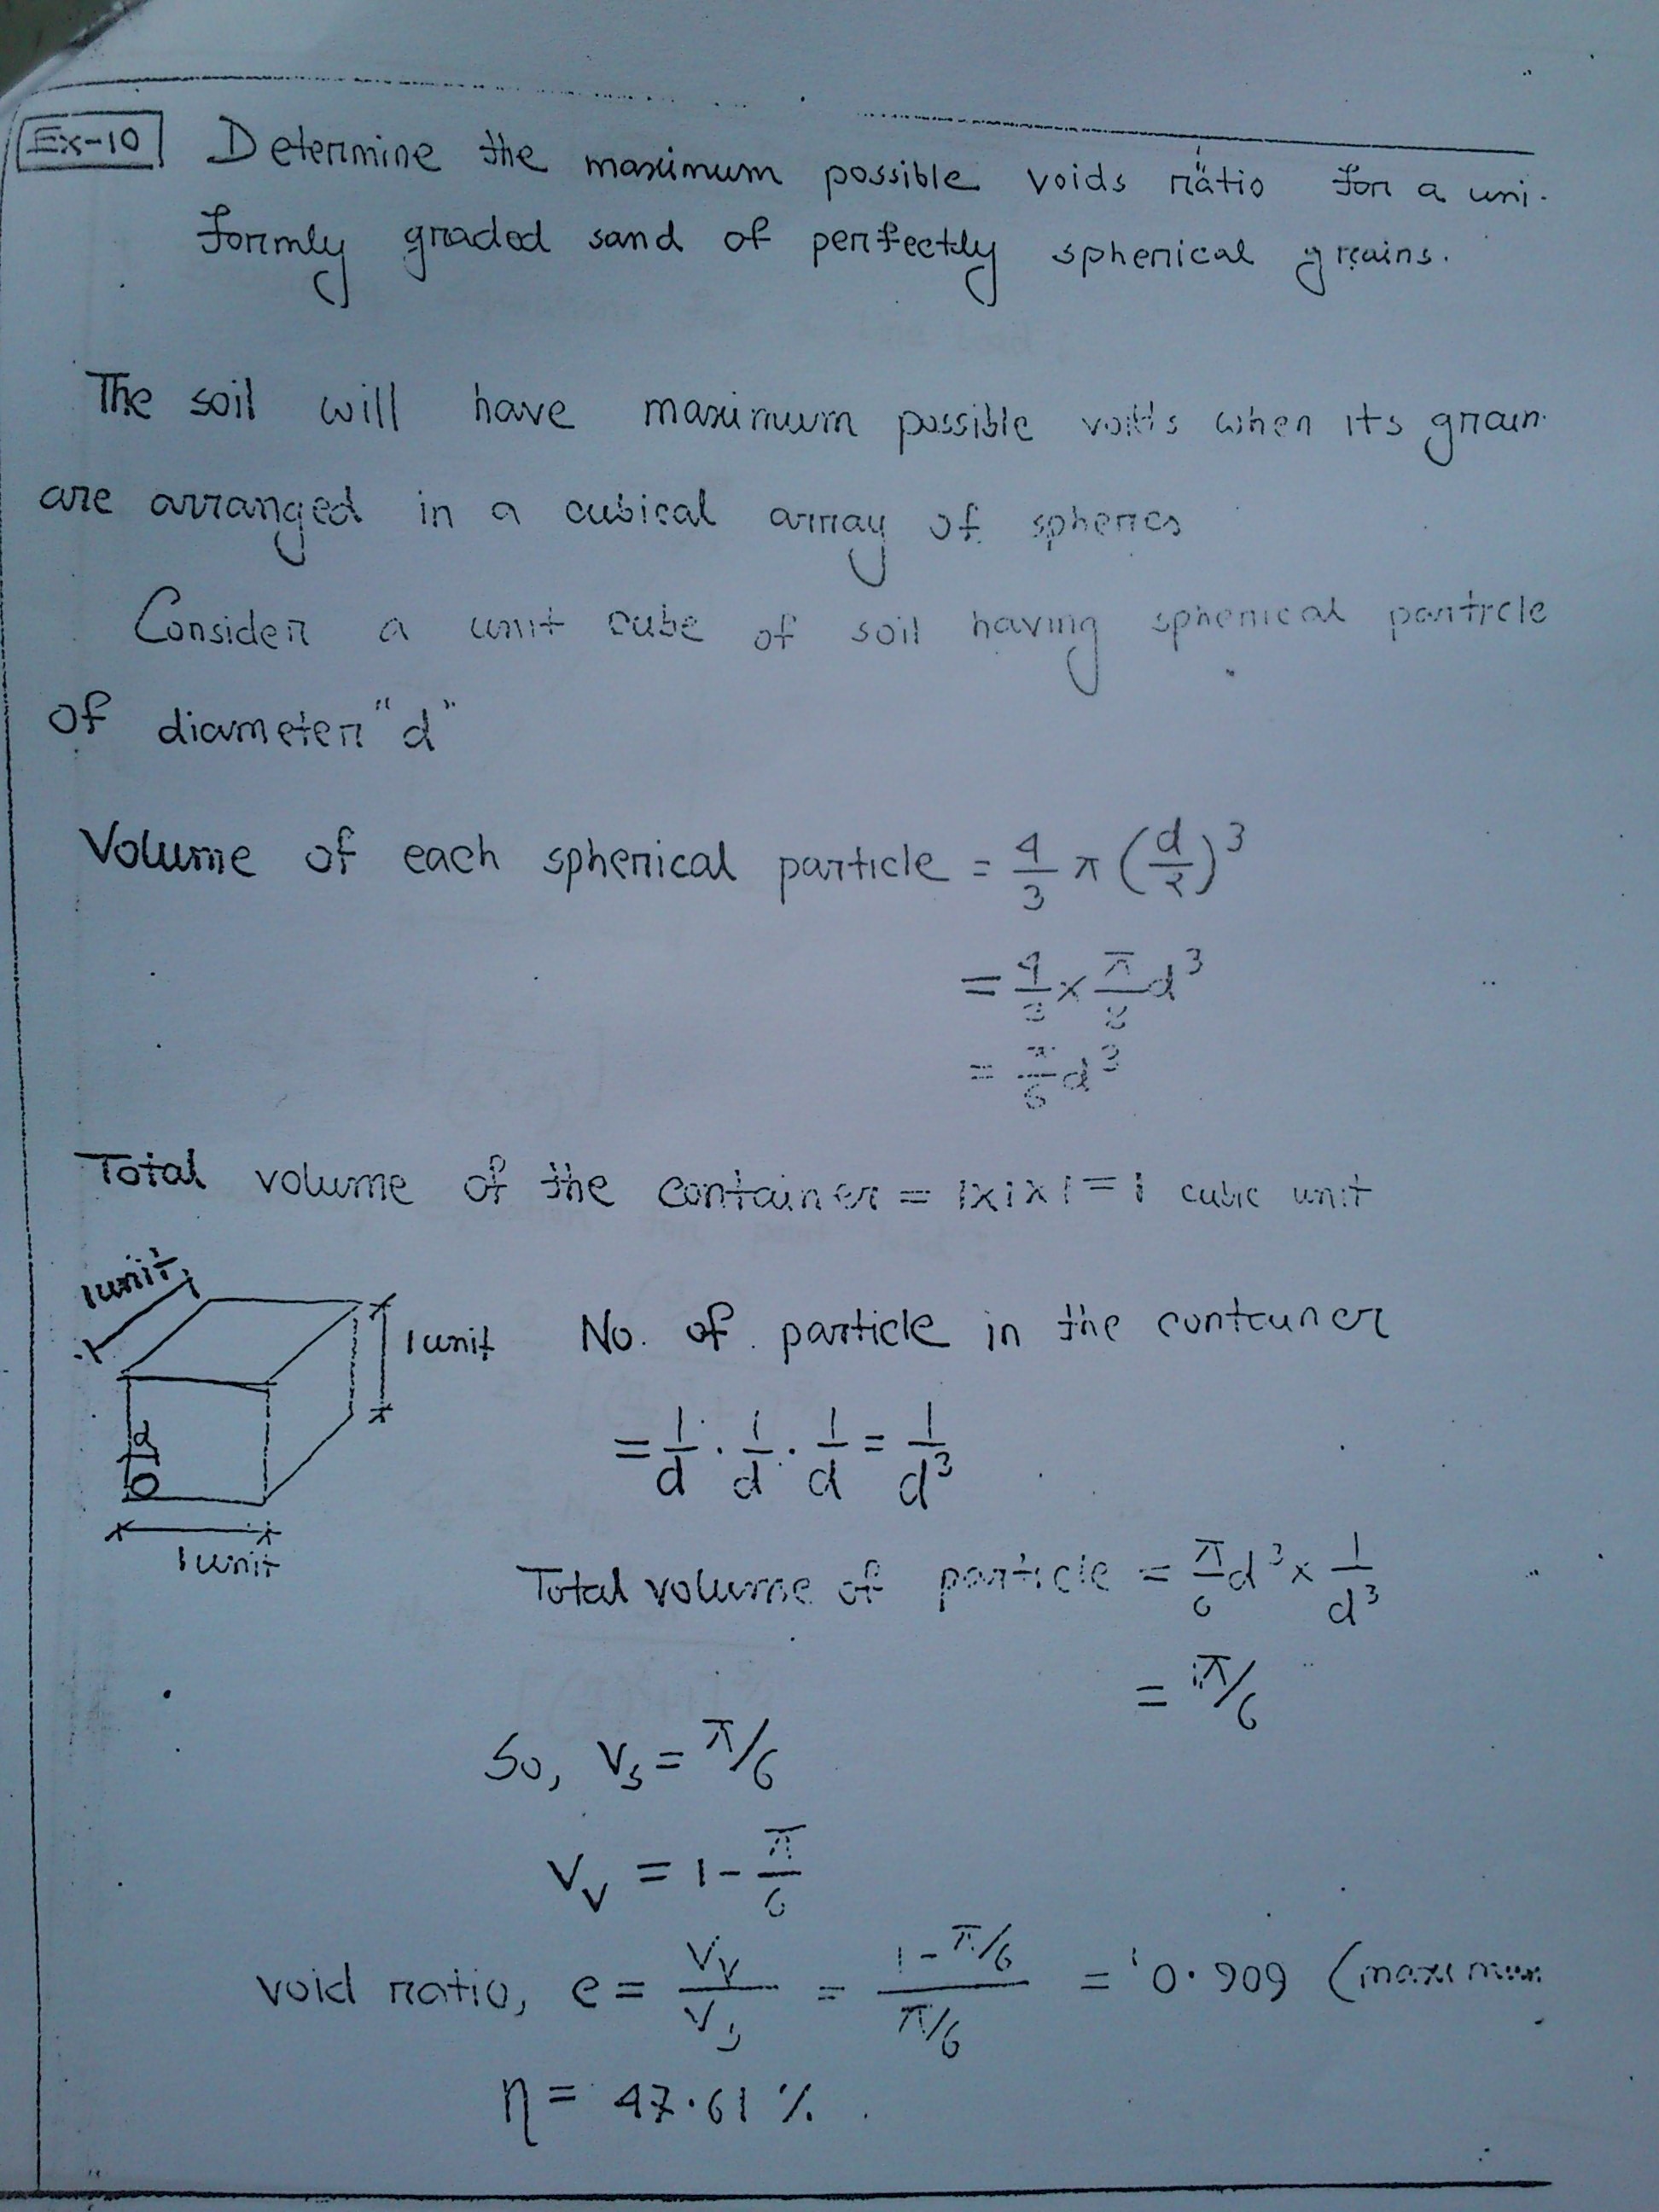 Ex-10 Determine the maximum possible voids ratio for a uni-
formly graded sand of perfectly spherical grains.
The soil will have maximum possible voids when its grain
are arranged in a cubical array of spheres
Consider a unit cube of soil having spherical particle
of diameter "d"
Volume of each spherical particle = 4/3 π (d/2)³
= 4/3 × π/8 d³
= π/6 d³
Total volume of the container = 1×1×1 = 1 cubic unit
1 unit
1 unit
No. of particle in the container
d
= 1/d · 1/d · 1/d = 1/d³
1 unit
Total volume of particle = π/6 d³ × 1/d³
= π/6
So, Vs = π/6
Vv = 1 - π/6
void ratio, e = Vv/Vs = (1 - π/6)/(π/6) = 0.909 (maximum
η = 47.61 %.